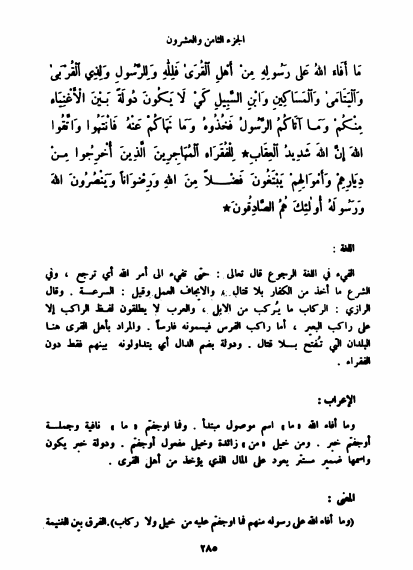 الجزء الثامن والعشرون
مَا أَفَاءَ اللهُ عَلَى رَسُولِهِ مِنْ أَهْلِ الْقُرَى فَلِلّٰهِ وَلِلرَّسُولِ وَلِذِي الْقُرْبَىٰ
وَالْيَتَامَىٰ وَالْمَسَاكِينِ وَابْنِ السَّبِيلِ كَيْ لَا يَكُونَ دُولَةً بَيْنَ الْأَغْنِيَاءِ
مِنْكُمْ وَمَا آتَاكُمُ الرَّسُولُ فَخُذُوهُ وَمَا نَهَاكُمْ عَنْهُ فَانْتَهُوا وَاتَّقُوا
اللهَ إِنَّ اللهَ شَدِيدُ الْعِقَابِ* لِلْفُقَرَاءِ الْمُهَاجِرِينَ الَّذِينَ أُخْرِجُوا مِنْ
دِيَارِهِمْ وَأَمْوَالِهِمْ يَبْتَغُونَ فَضْلًا مِنَ اللهِ وَرِضْوَانًا وَيَنْصُرُونَ اللهَ
وَرَسُولَهُ أُولٰئِكَ هُمُ الصَّادِقُونَ*
اللغة :
الفيء في اللغة الرجوع قال تعالى : حتى تفيء الى أمر الله أي ترجع ، وفي
الشرع ما أخذ من الكفار بلا قتال . والايجاف العمل وقيل : السرعة . وقال
الرازي : الركاب ما يُركب من الابل ، والعرب لا يطلقون لفظ الراكب إلا
على راكب البعير ، أما راكب الفرس فيسمونه فارساً . والمراد بأهل القرى هنا
البلدان التي تُفتح بلا قتال . ودولة بضم الدال أي يتداولونه بينهم فقط دون
الفقراء .
الإعراب :
وما أفاء الله «ما» اسم موصول مبتدأ . وفما أوجفتم «ما» نافية وجملة
أوجفتم خبر . ومن خيل «من» زائدة وخيل مفعول أوجفتم . ودولة خبر يكون
واسمها ضمير مستتر يعود على المال الذي يؤخذ من أهل القرى .
المعنى :
(وما أفاء الله على رسوله منهم فما أوجفتم عليه من خيل ولا ركاب). الفرق بين الغنيمة
٢٨٥